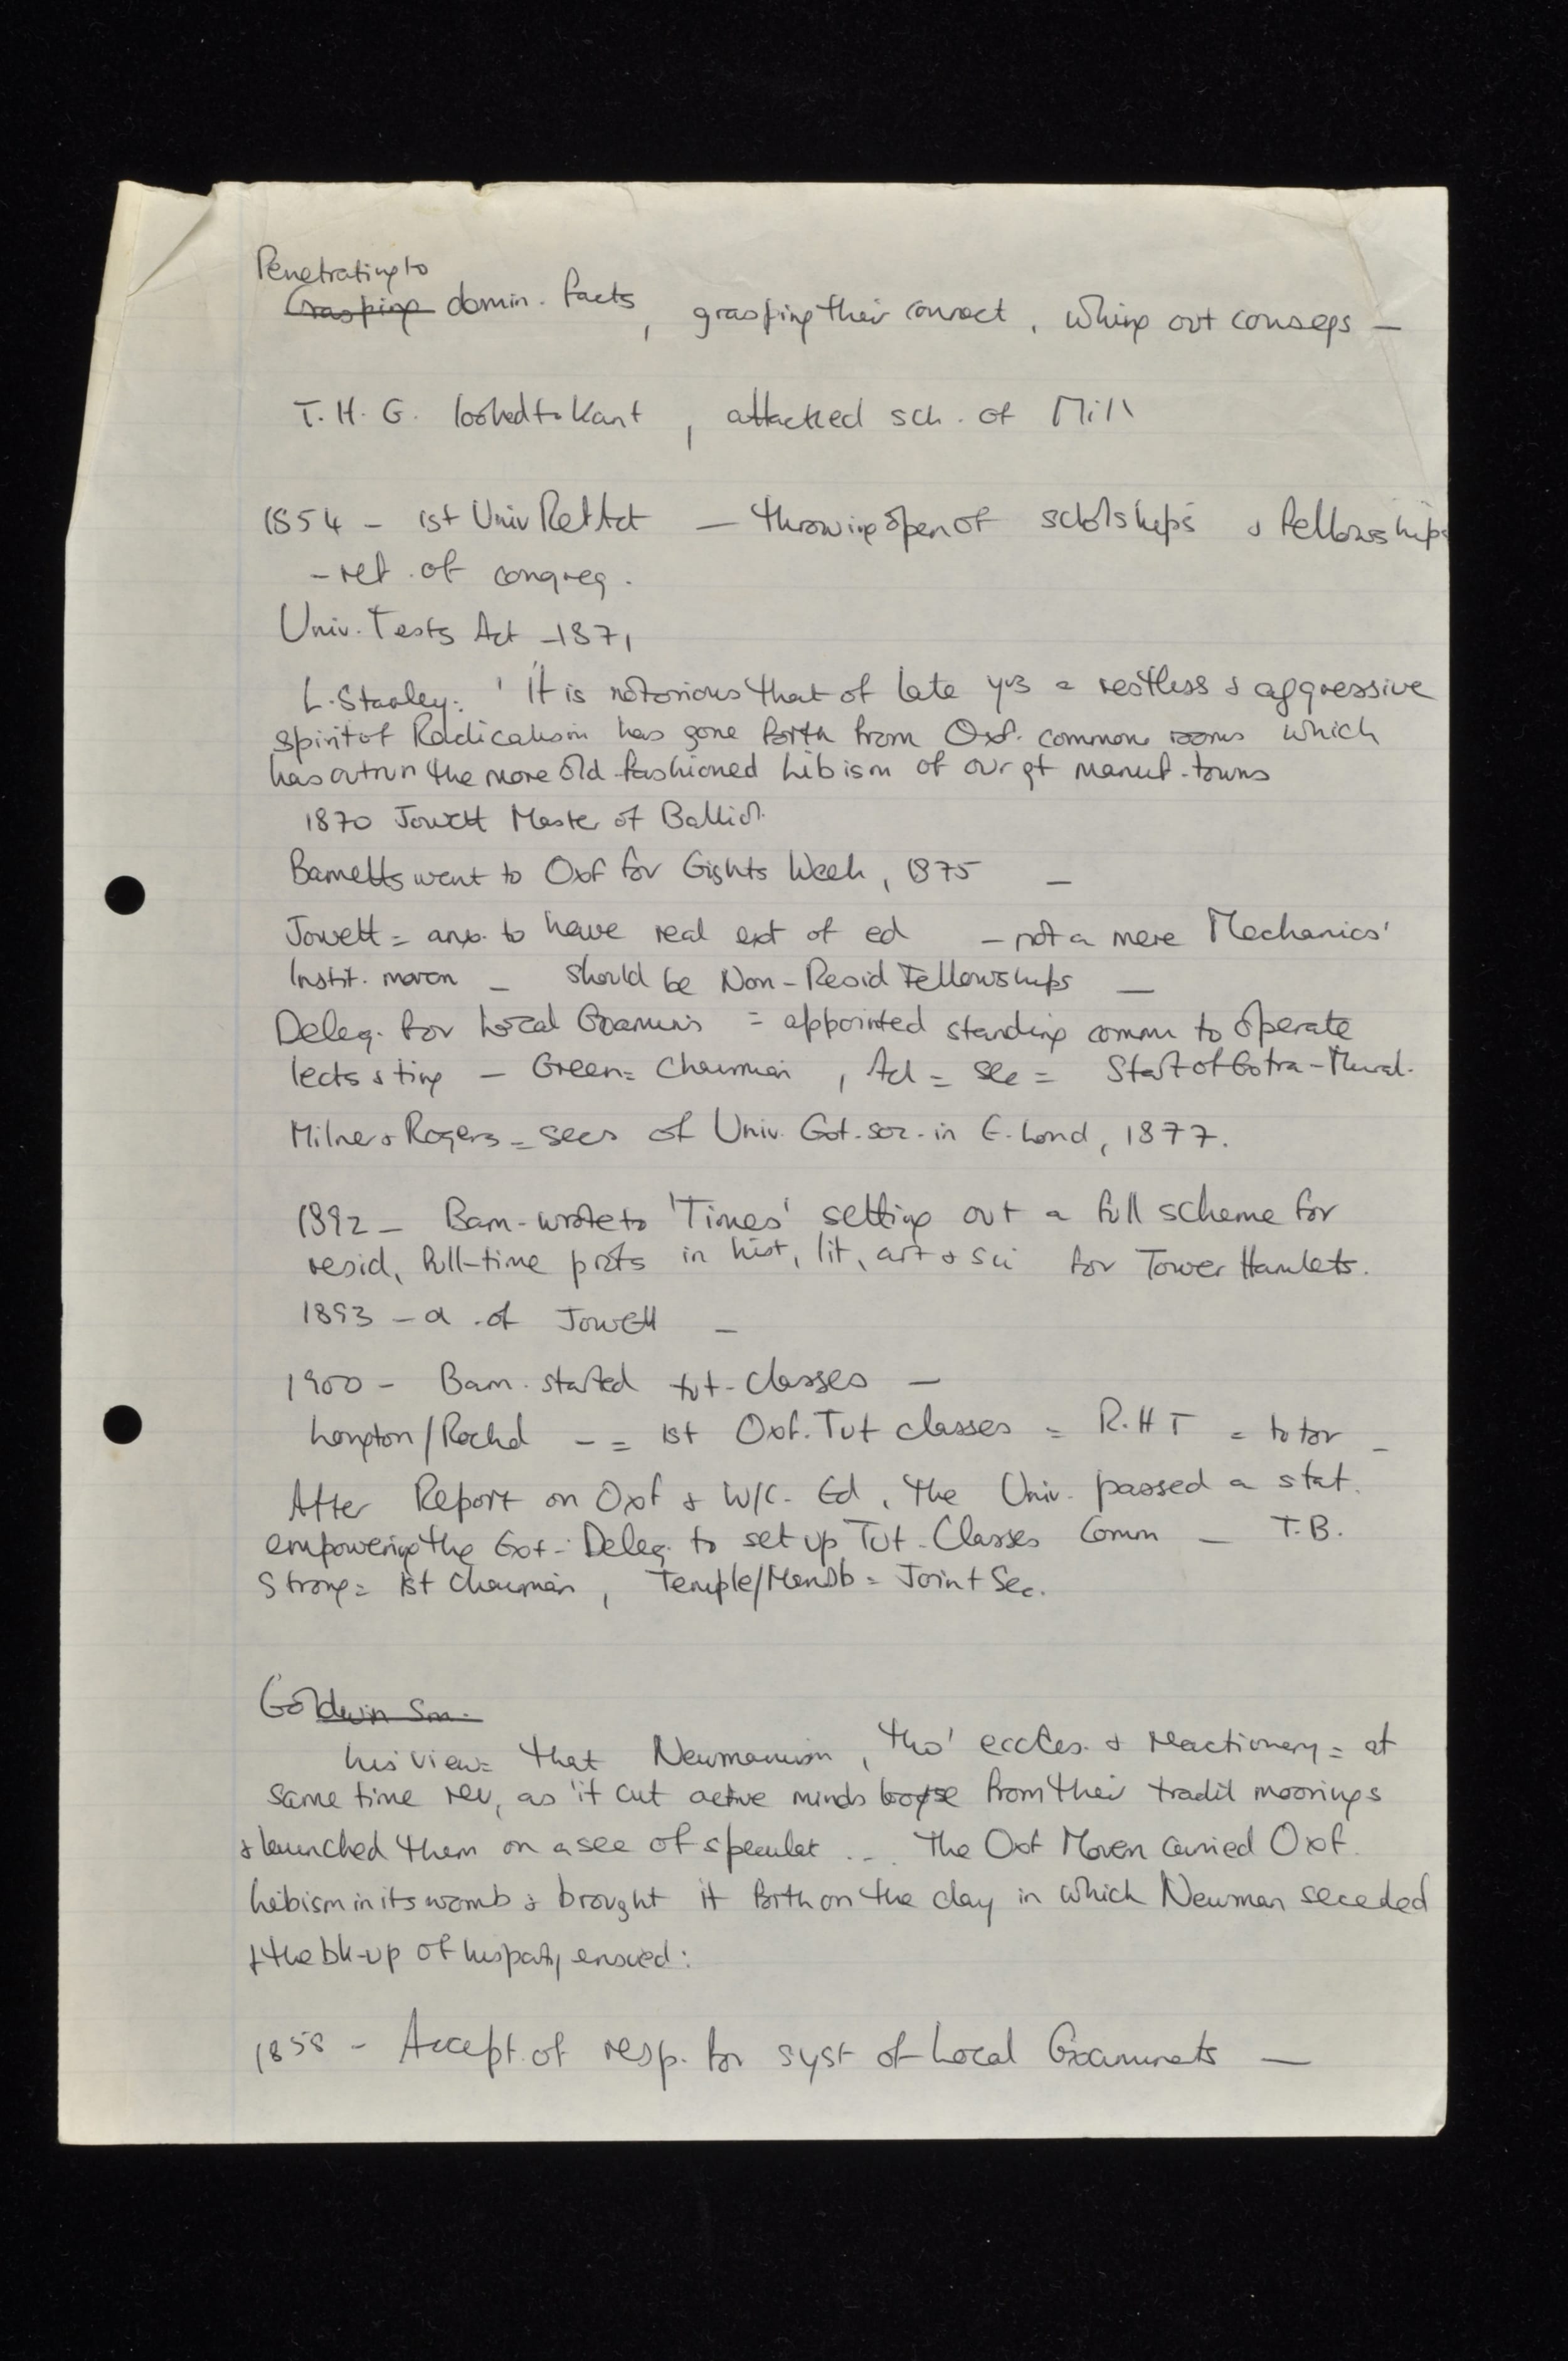 Penetrating to
Grasping domin. facts, grasping their connect, wking out conseqs —
T. H. G. looked to Kant, attacked sch. of Mill
1854 - 1st Univ Ref Act — throwing open of scholships & fellowships
- ref. of congreg.
Univ. Tests Act - 1871
L. Stanley: 'It is notorious that of late yrs a restless & aggressive
spirit of Radicalism has gone forth from Oxf. common rooms which
has outrun the more old-fashioned Libism of our gt manuf. towns
1870 Jowett Master of Balliol.
Barnetts went to Oxf for Eights Week, 1875 —
Jowett = anx. to have real ext of ed - not a mere Mechanics'
Instit. moven - should be Non-Resid Fellowships —
Deleg. for Local Examins = appointed standing comm to operate
lects & ting - Green = Chairman, Acl = sec = Start of Extra-Mural.
Milner & Rogers = secs of Univ. Ext. soc. in E. Lond, 1877.
1892 - Barn. wrote to 'Times' setting out a full scheme for
resid, full-time profs in hist, lit, art & sci for Tower Hamlets.
1893 - d. of Jowett —
1900 - Barn. started tut-classes —
Longton/Rochd - = 1st Oxf. Tut classes = R.H T = tutor -
After Report on Oxf & W/C. Ed, the Univ. passed a stat.
empowering the Ext-Deleg. to set up Tut-Classes Comm - T.B.
Strong = 1st chairman, Temple/Mansb = Joint Sec.
Goldwin Sm.
his view = that Newmanism, tho' eccles. & reactionery = at
same time rev, as 'it cut active minds loose from their tradit moorings
& launched them on a sea of speculat ... The Oxf Moven carried Oxf.
Libism in its womb & brought it forth on the day in which Newman seceded
& the bk-up of his party ensued:
1858 - Accept. of resp. for syst of Local Examinats —